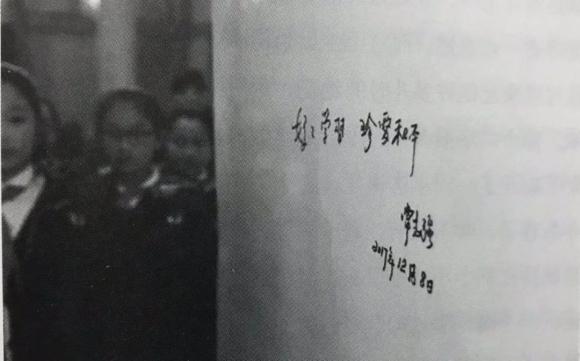 好好学习 珍爱和平
常志强
2017年12月8日